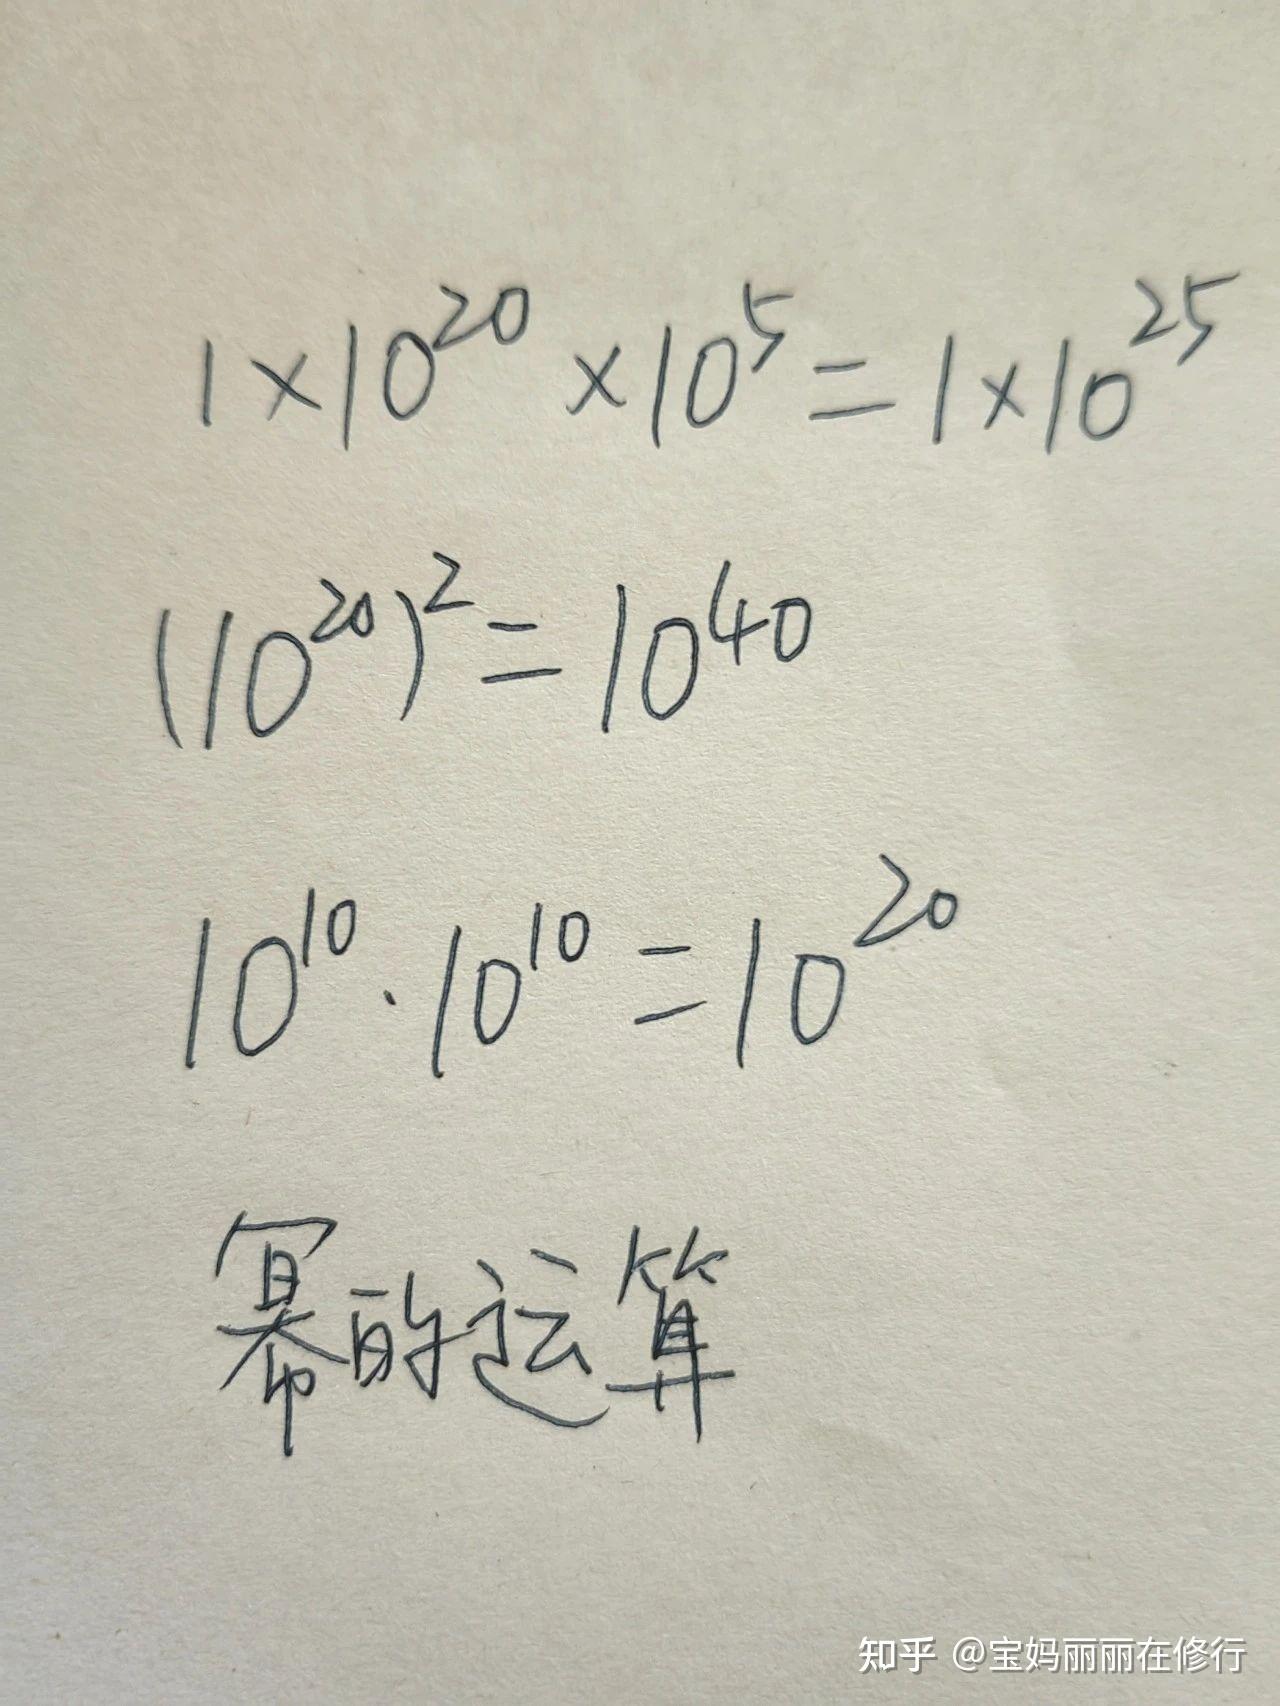 1×10²⁰×10⁵=1×10²⁵
(10²⁰)²=10⁴⁰
10¹⁰·10¹⁰=10²⁰
幂的运算
知乎 @宝妈丽丽在修行